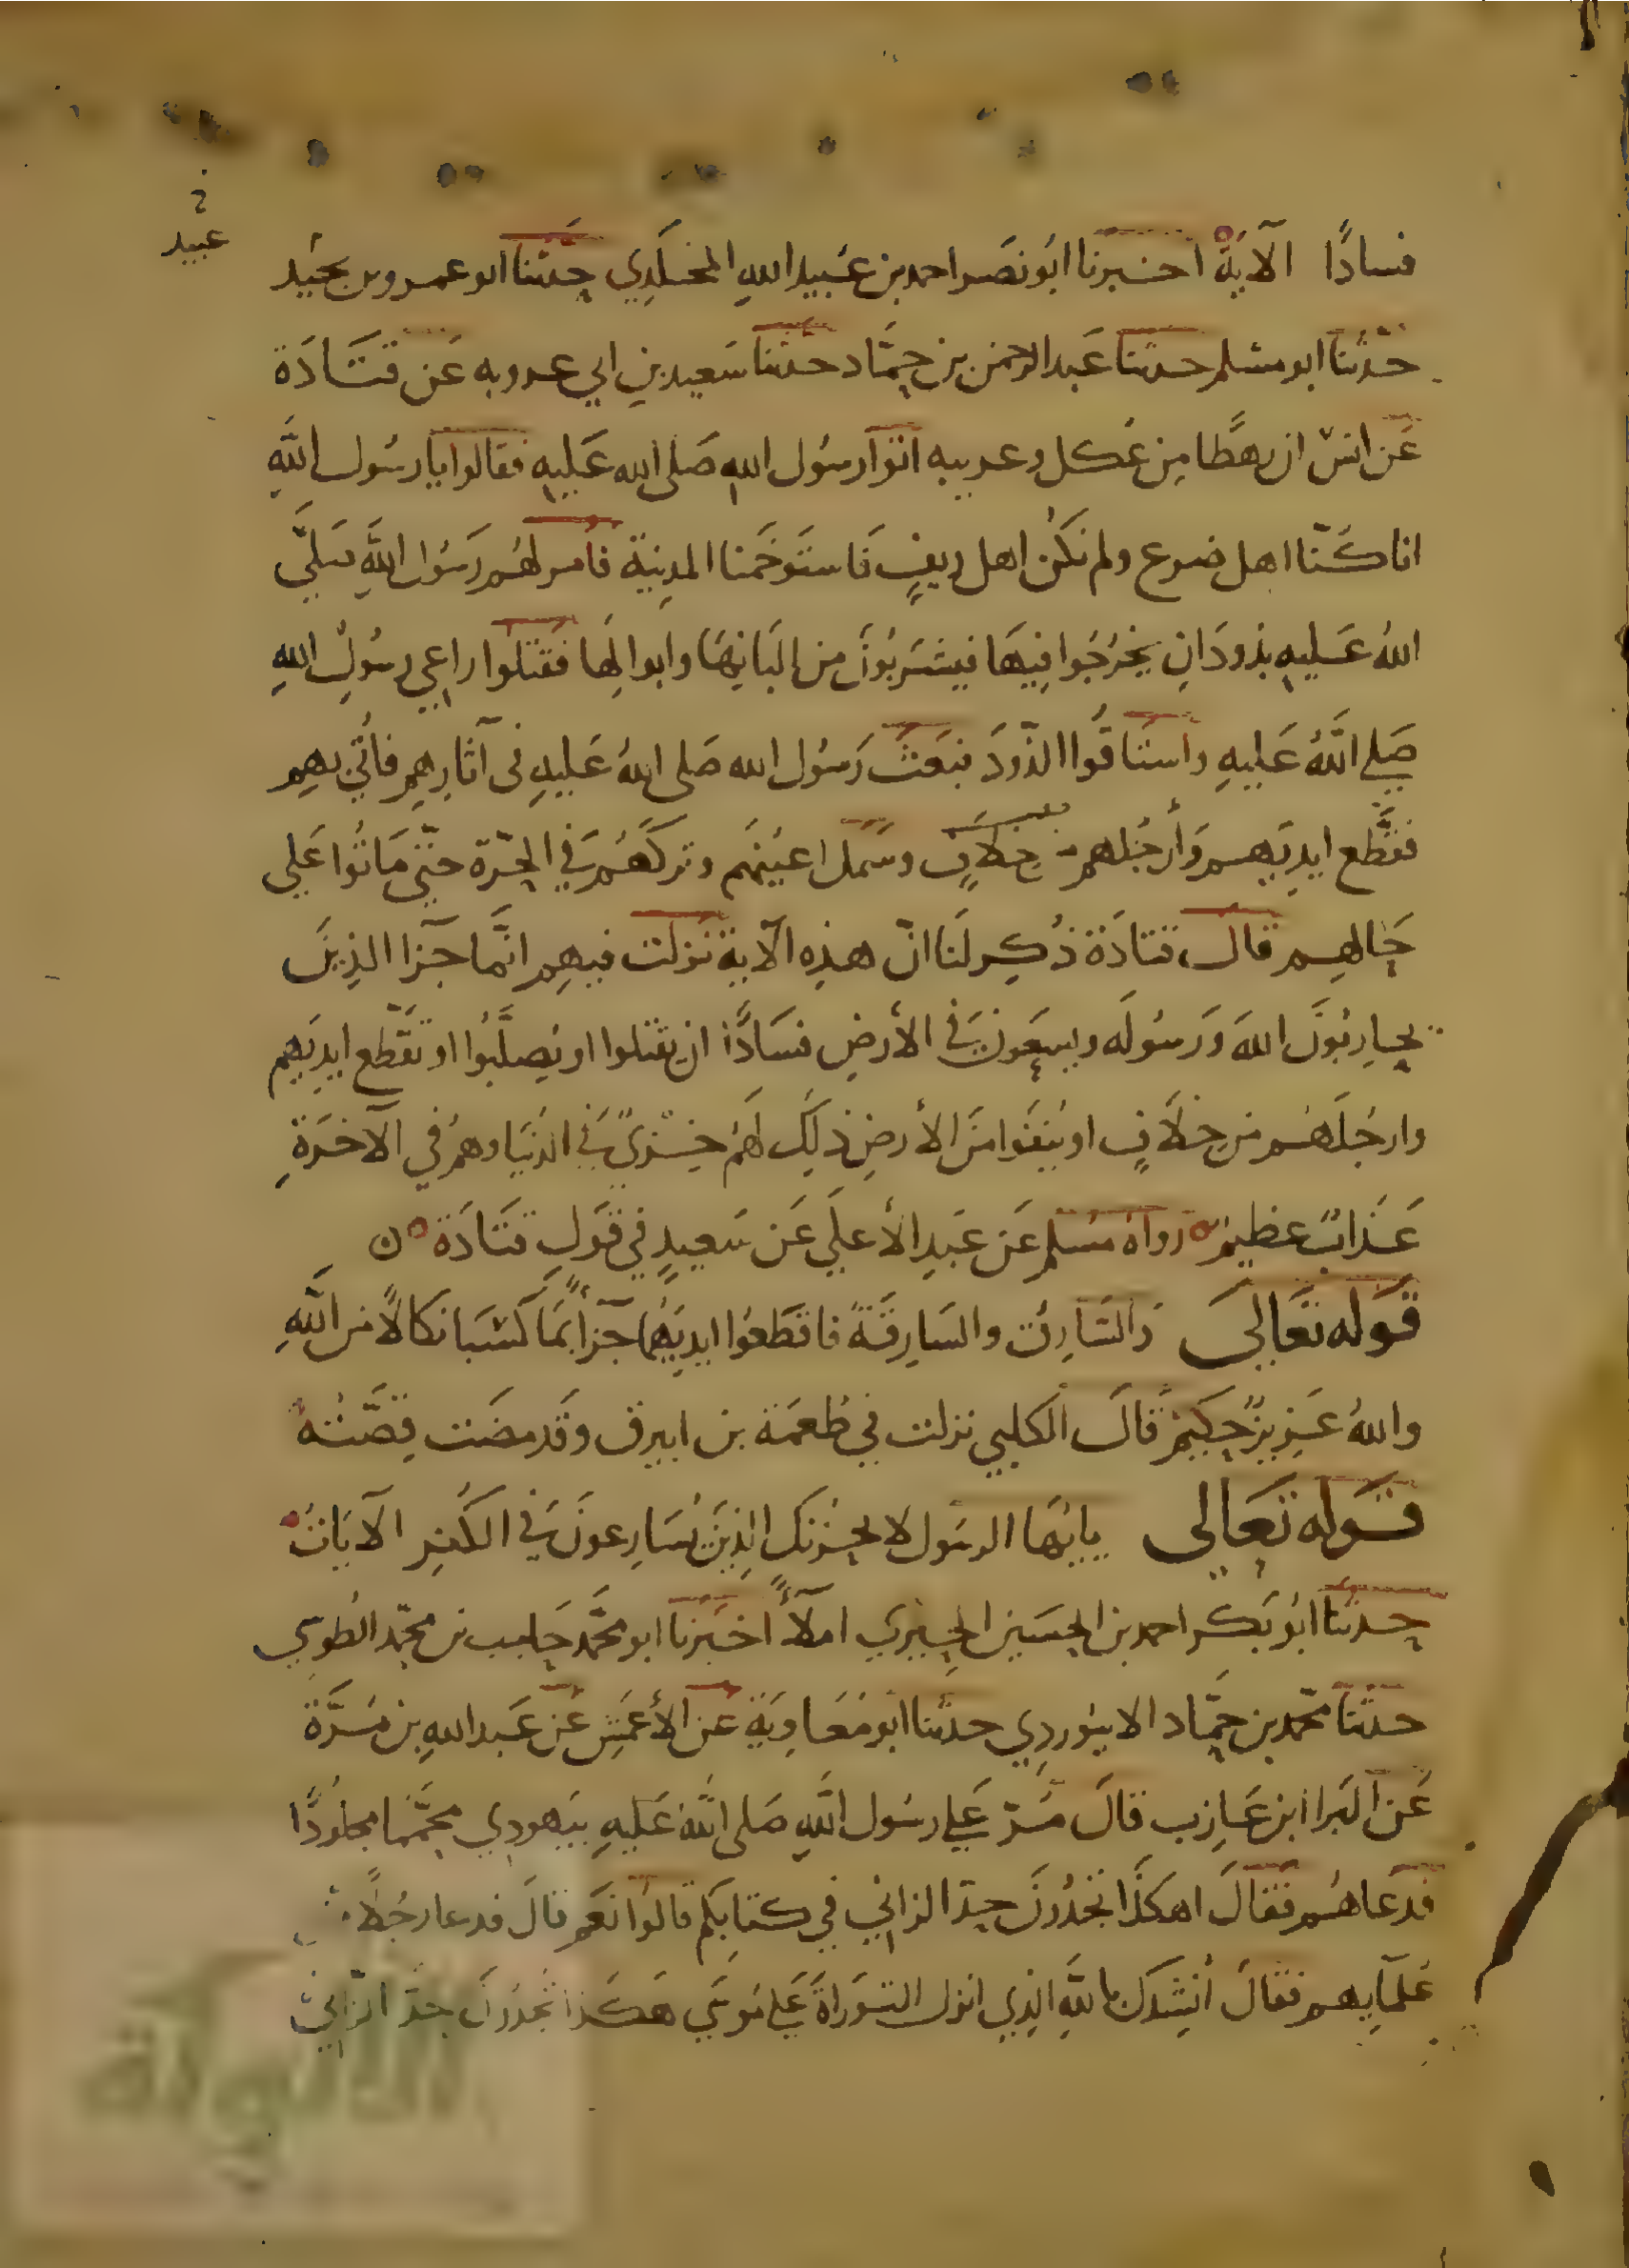 عبيد
فسادًا الآية اخبرنا ابو نصر احمد بن عبيد الله المخلدي حدثنا ابو عمرو بن نجيد
حدثنا ابو مسلم حدثنا عبد الرحمن بن حماد حدثنا سعيد بن ابي عروبه عن قتادة
عن انس ان رهطا من عكل وعرينه اتوا رسول الله صلى الله عليه فقالوا يا رسول الله
انا كنا اهل ضرع ولم نكن اهل ريف فاستوخمنا المدينة فامر لهم رسول الله صلى
الله عليه بذود ان يخرجوا فيها فيشربون من البانها وابوالها فقتلوا راعي رسول الله
صلى الله عليه واستاقوا الذود فبعث رسول الله صلى الله عليه في آثارهم فأتي بهم
فقطع ايديهم وأرجلهم خلاف وسمل اعينهم وتركهم في الحرة حتى ماتوا على
حالهم قال قتادة ذكر لنا ان هذه الآية نزلت فيهم انما جزا الذين
يحاربون الله ورسوله ويسعون في الأرض فسادًا ان يقتلوا او يصلبوا او تقطع ايديهم
وارجلهم من خلاف او ينفوا من الأرض ذلك لهم خزي في الدنيا ولهم في الآخرة
عذاب عظيم رواه مسلم عن عبد الأعلى عن سعيد في قول قتادة
قوله تعالى والسارق والسارقة فاقطعوا ايديهما جزاءً بما كسبا نكالًا من الله
والله عزيز حكيم قال الكلبي نزلت في طعمة بن ابيرق وقد مضت قصته
قوله تعالى يايها الرسول لا يحزنك الذين يسارعون في الكفر الآيات
حدثنا ابو بكر احمد بن الحسين الحيري املآءً اخبرنا ابو محمد حاجب بن محمد الطوسي
حدثنا محمد بن حماد الابيوردي حدثنا ابو معاوية عن الأعمش عن عبد الله بن مرة
عن البرا ابن عازب قال مر على رسول الله صلى الله عليه بيهودي محمما مجلودًا
فدعاهم فقال اهكذا تجدون حد الزاني في كتابكم قالوا نعم قال فدعا رجلًا من
علمايهم فقال أنشدك بالله الذي انزل التوراة على موسى هكذا تجدون حد الزاني